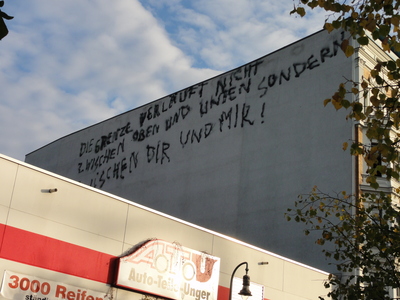 DIE GRENZE VERLÄUFT NICHT
ZWISCHEN OBEN UND UNTEN SONDERN
ZWISCHEN DIR UND MIR!
Auto-Teile-Unger
3000 Reifen
ständig